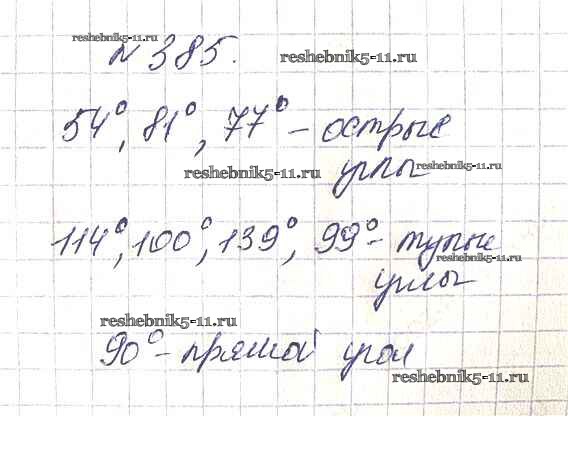 reshebnik5-11.ru
№ 385.
reshebnik5-11.ru
54°, 81°, 77° – острые
reshebnik5-11.ru
углы
reshebnik5-11.ru
114°, 100°, 139°, 99° – тупые
reshebnik5-11.ru
углы
reshebnik5-11.ru
90° – прямой угол
reshebnik5-11.ru